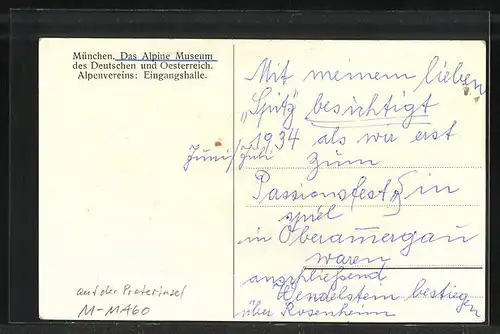 München. Das Alpine Museum
des Deutschen und Oesterreich.
Alpenvereins: Eingangshalle.
auf der Praterinsel
M-MA60
Mit meinem lieben
„Spitz besichtigt
1934 als wir erst
Juni/Juli zum
Passionsfest in
spiel
in Oberamergau
waren
anschließend
Wendelstein bestiegen
über Rosenheim